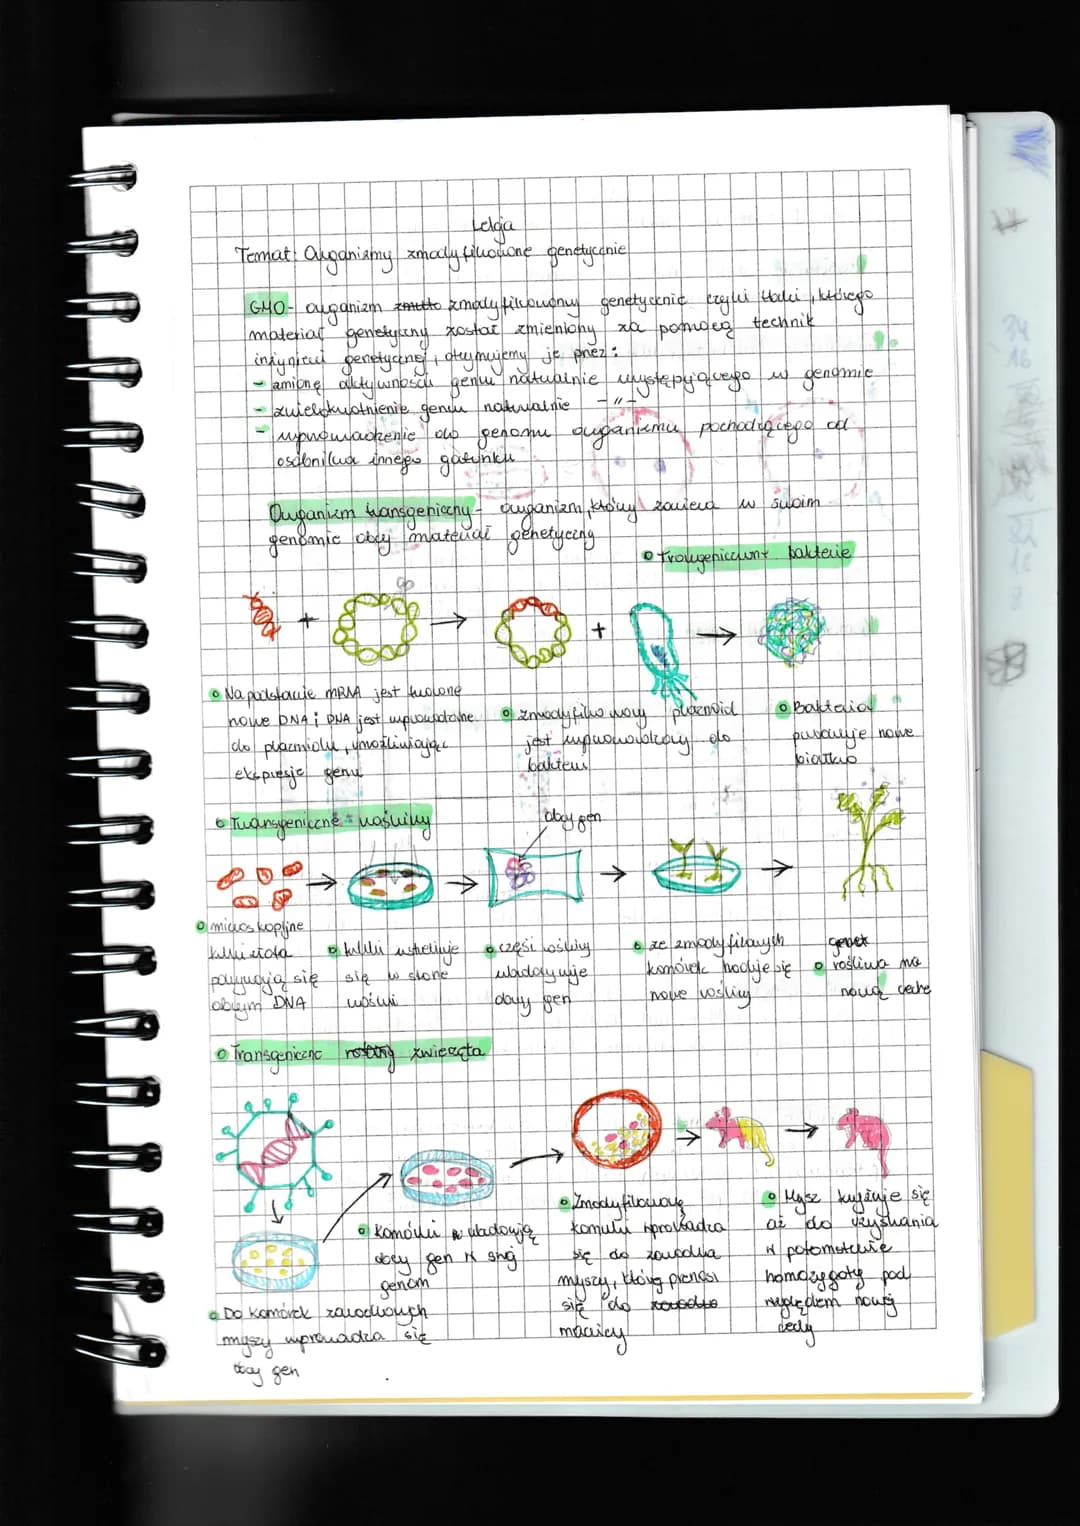 Lekcja
Temat: Organizmy zmodyfikowane genetycznie
GMO - organizm zmodyfikowany genetycznie czyli taki, którego
materiał genetyczny został zmieniony za pomocą technik
inżynierii genetycznej, otrzymujemy je przez:
- zmianę aktywności genu naturalnie występującego w genomie
- zwielokrotnienie genu naturalnie -//-
- wprowadzenie do genomu organizmu pochodzącego od
osobnika innego gatunku
Organizm transgeniczny - organizm, który zawiera w swoim
genomie obcy materiał genetyczny
bakterie
+ → + →
Na podstawie mRNA jest tworzone
nowe DNA i DNA jest wprowadzane
do plazmidu, umożliwiając
ekspresję genu
zmodyfikowany plazmid
jest wprowadzany do
bakterii
Bakteria
produkuje nowe
białko
Transgeniczne rośliny
obcy gen
→ → → →
mikroskopijne
kulki złota
pokrywają się
obcym DNA
kulki wstrzeliwuje
się w
rośliny
część rośliny
wbudowuje
obcy gen
ze zmodyfikowanych
komórek hoduje się
nowe rośliny
roślina ma
nową cechę
Transgeniczne zwierzęta
Do komórek zarodkowych
myszy wprowadza się
obcy gen
Komórki wbudowują
obcy gen w swój
genom
Zmodyfikowane
komórki wprowadza
się do zarodka
myszy, który przenosi
się do
macicy
Mysz krzyżuje się
aż do uzyskania
w potomstwie
homozygoty pod
względem nowej
cechy